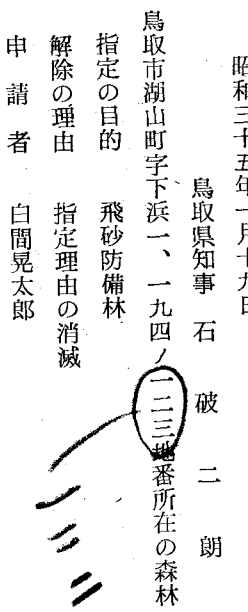 昭和三十五年一月十九日
鳥取県知事 石破二朗
鳥取市湖山町字下浜一、一九四ノ一二三地番所在の森林
指定の目的 飛砂防備林
解除の理由 指定理由の消滅
申請者 白間晃太郎
一二二